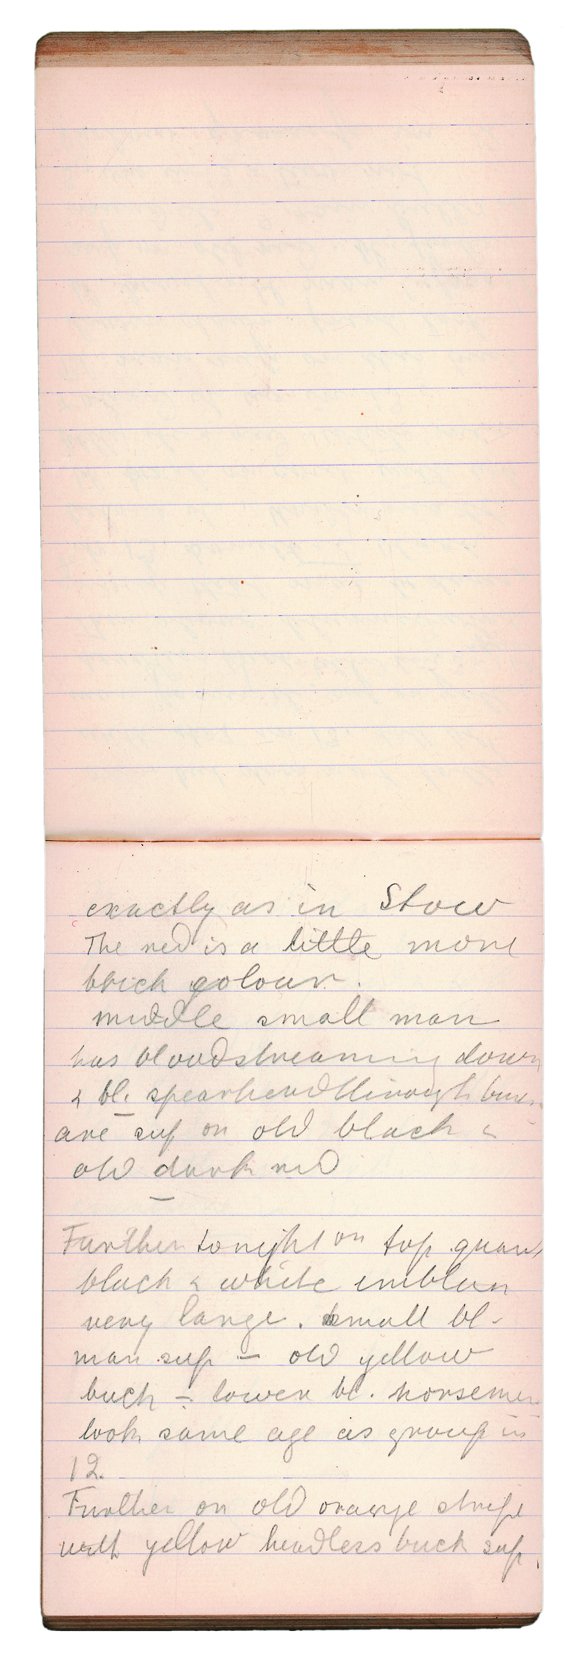 exactly as in Stow
The red is a little more
brick colour.
middle small man
has blood streaming down
& bl. spearhead through
are sup on old black &
old dark red
Further to right on top
black & white
very large. small bl.
man sup – old yellow
buck – lower bl. horsemen
look same age as group in
12.
Further on old orange stripe
with yellow headless buck sup.